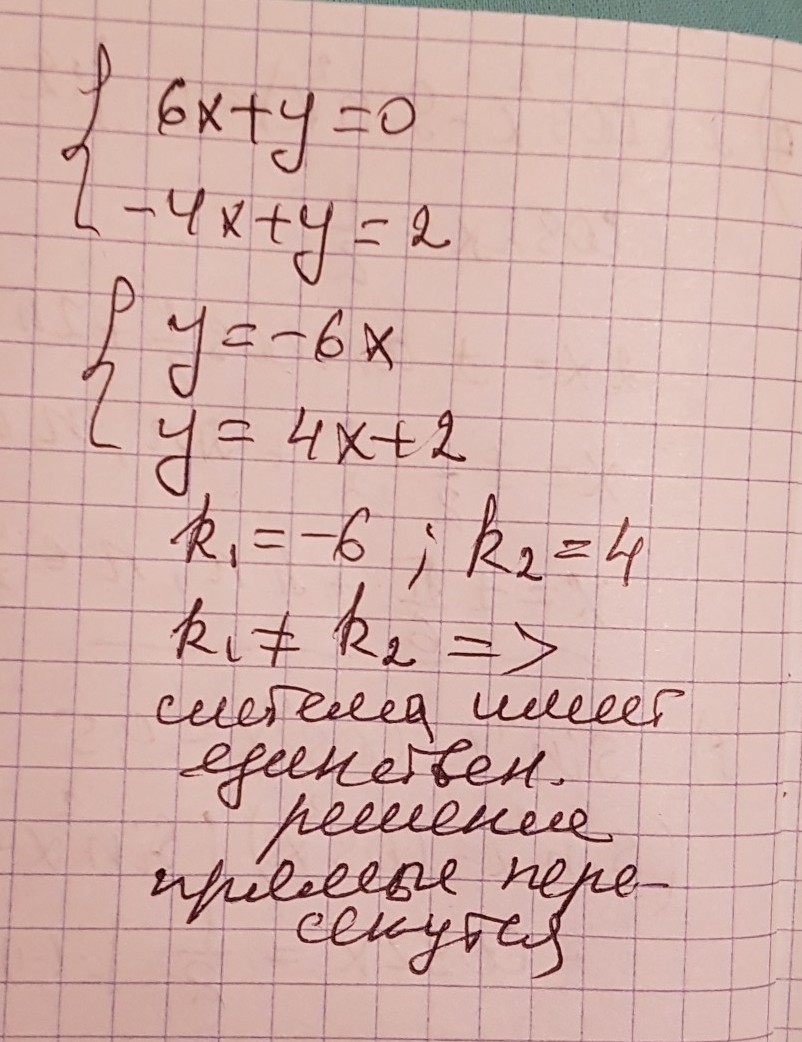 6x+y=0
-4x+y=2
y=-6x
y=4x+2
k₁=-6 ; k₂=4
k₁≠k₂ =>
система имеет
единствен.
решение
прямые пере-
секутся